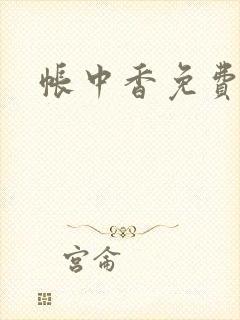 帐中香免费
宫侖